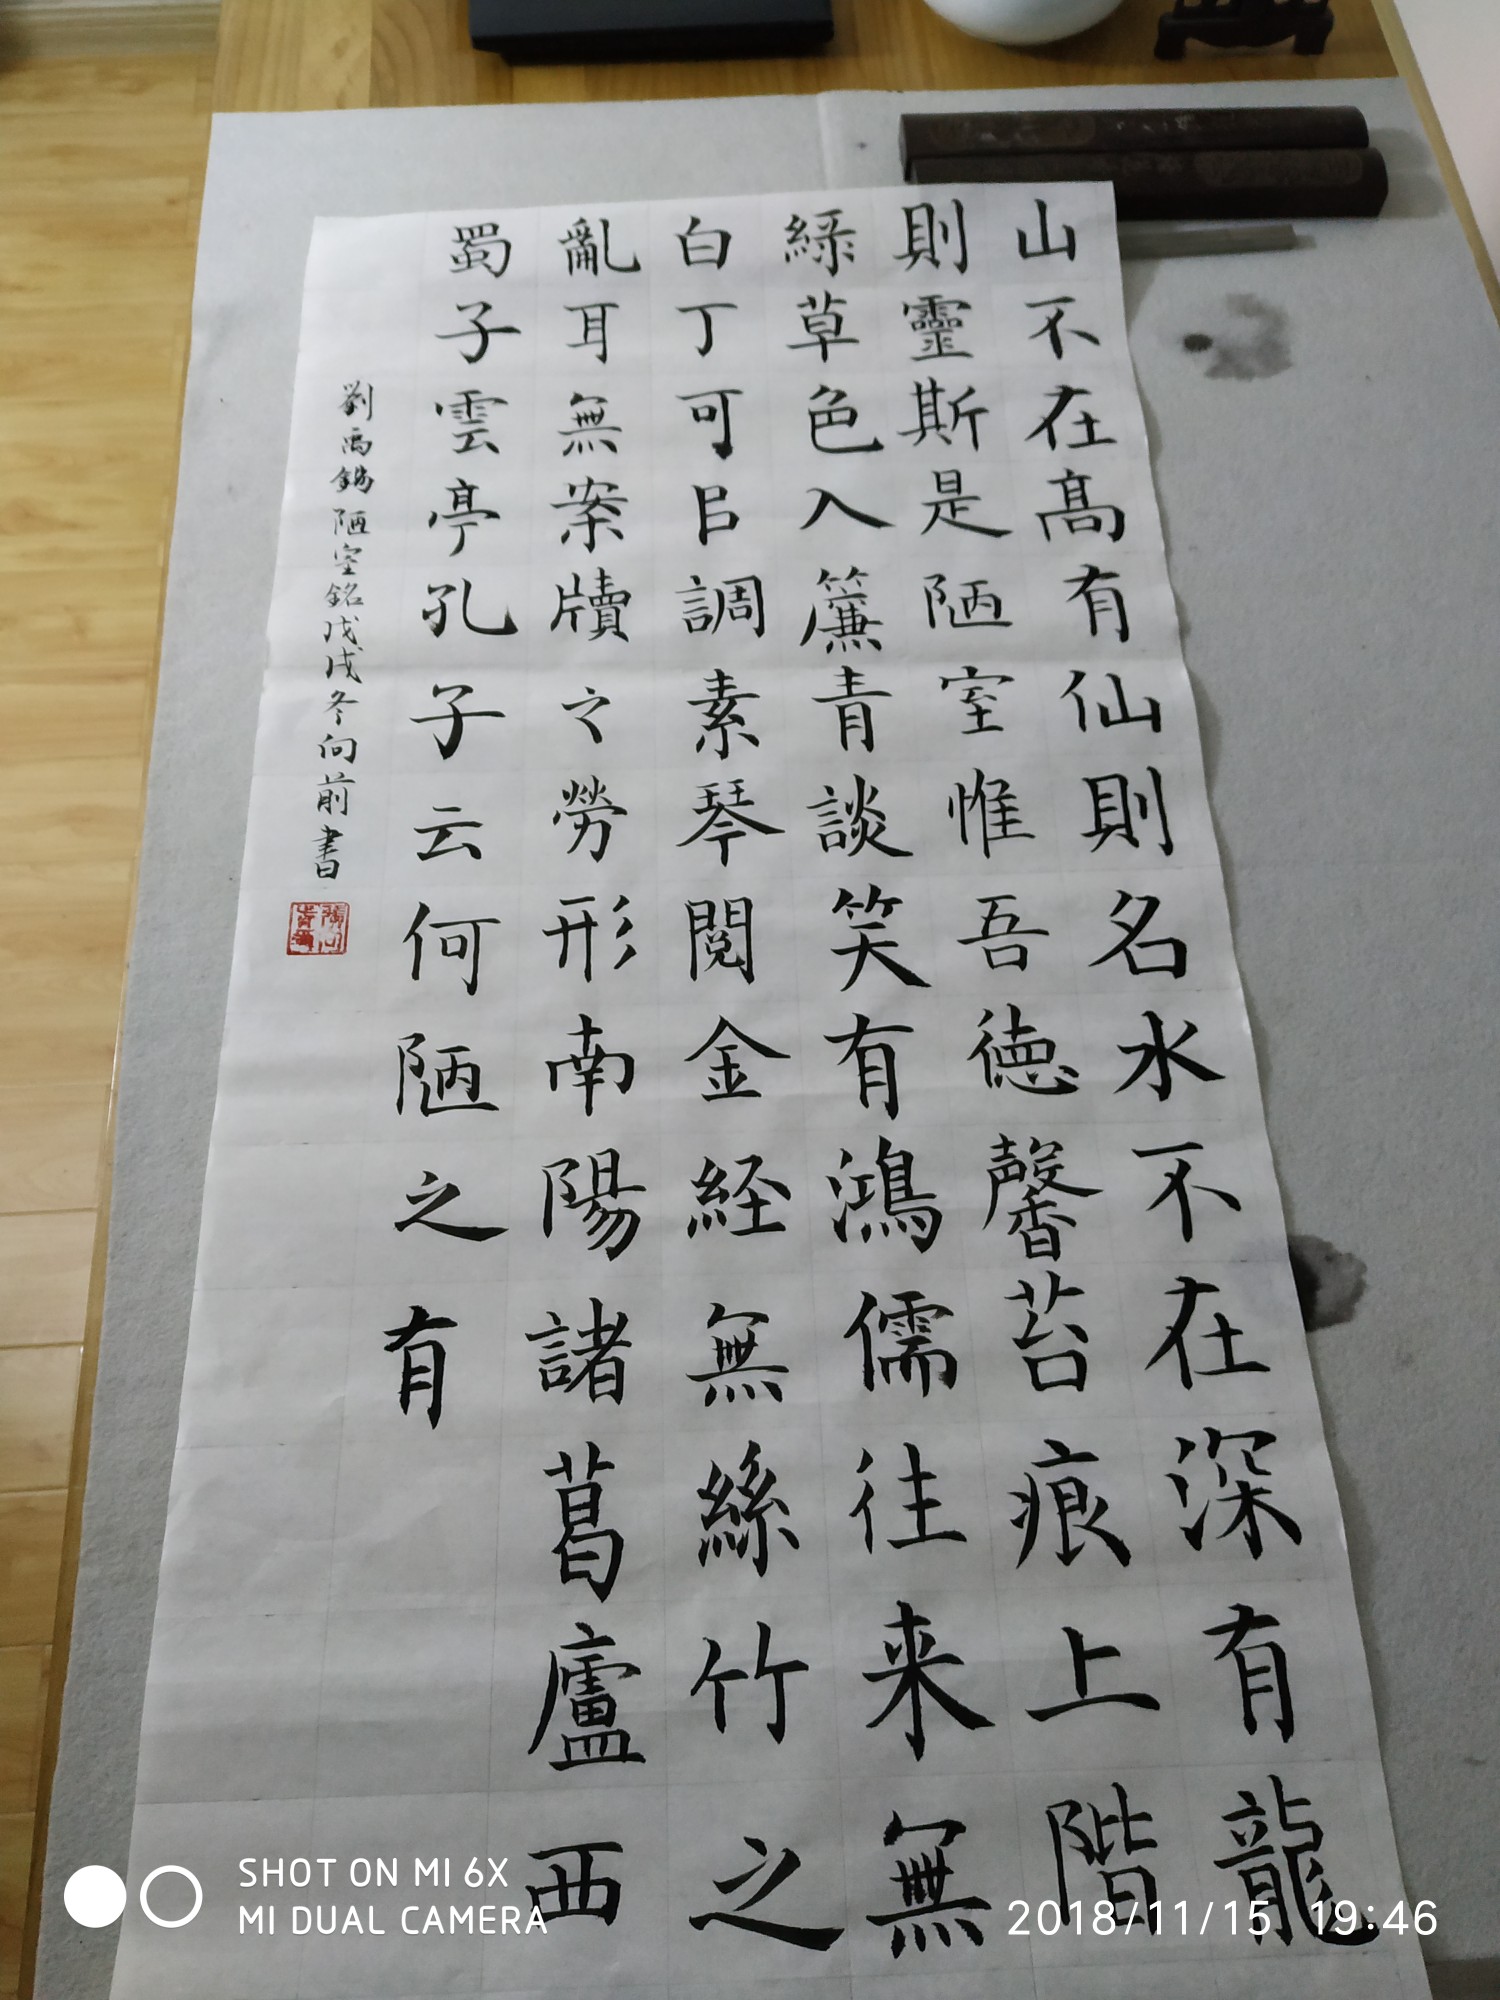 山不在髙有仙則名水不在深有龍
則靈斯是陋室惟吾徳馨苔痕上階
綠草色入簾青談笑有鴻儒往来無
白丁可㠯調素琴閱金経無絲竹之
亂耳無案牘之勞形南陽諸葛廬西
蜀子雲亭孔子云何陋之有
劉禹錫陋室銘戊戌冬向前書
SHOT ON MI 6X
MI DUAL CAMERA
2018/11/15 19:46